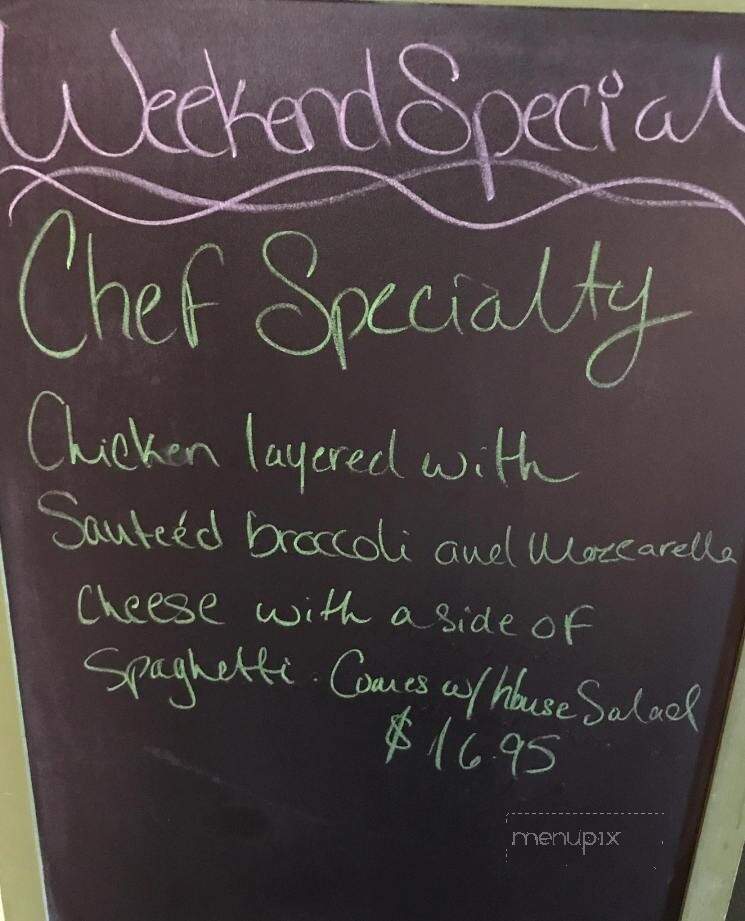 Weekend Special
Chef Specialty
Chicken layered with
Sauteéd broccoli and Mozzarella
cheese with a side of
Spaghetti. Comes w/ House Salad
$16.95
menupix